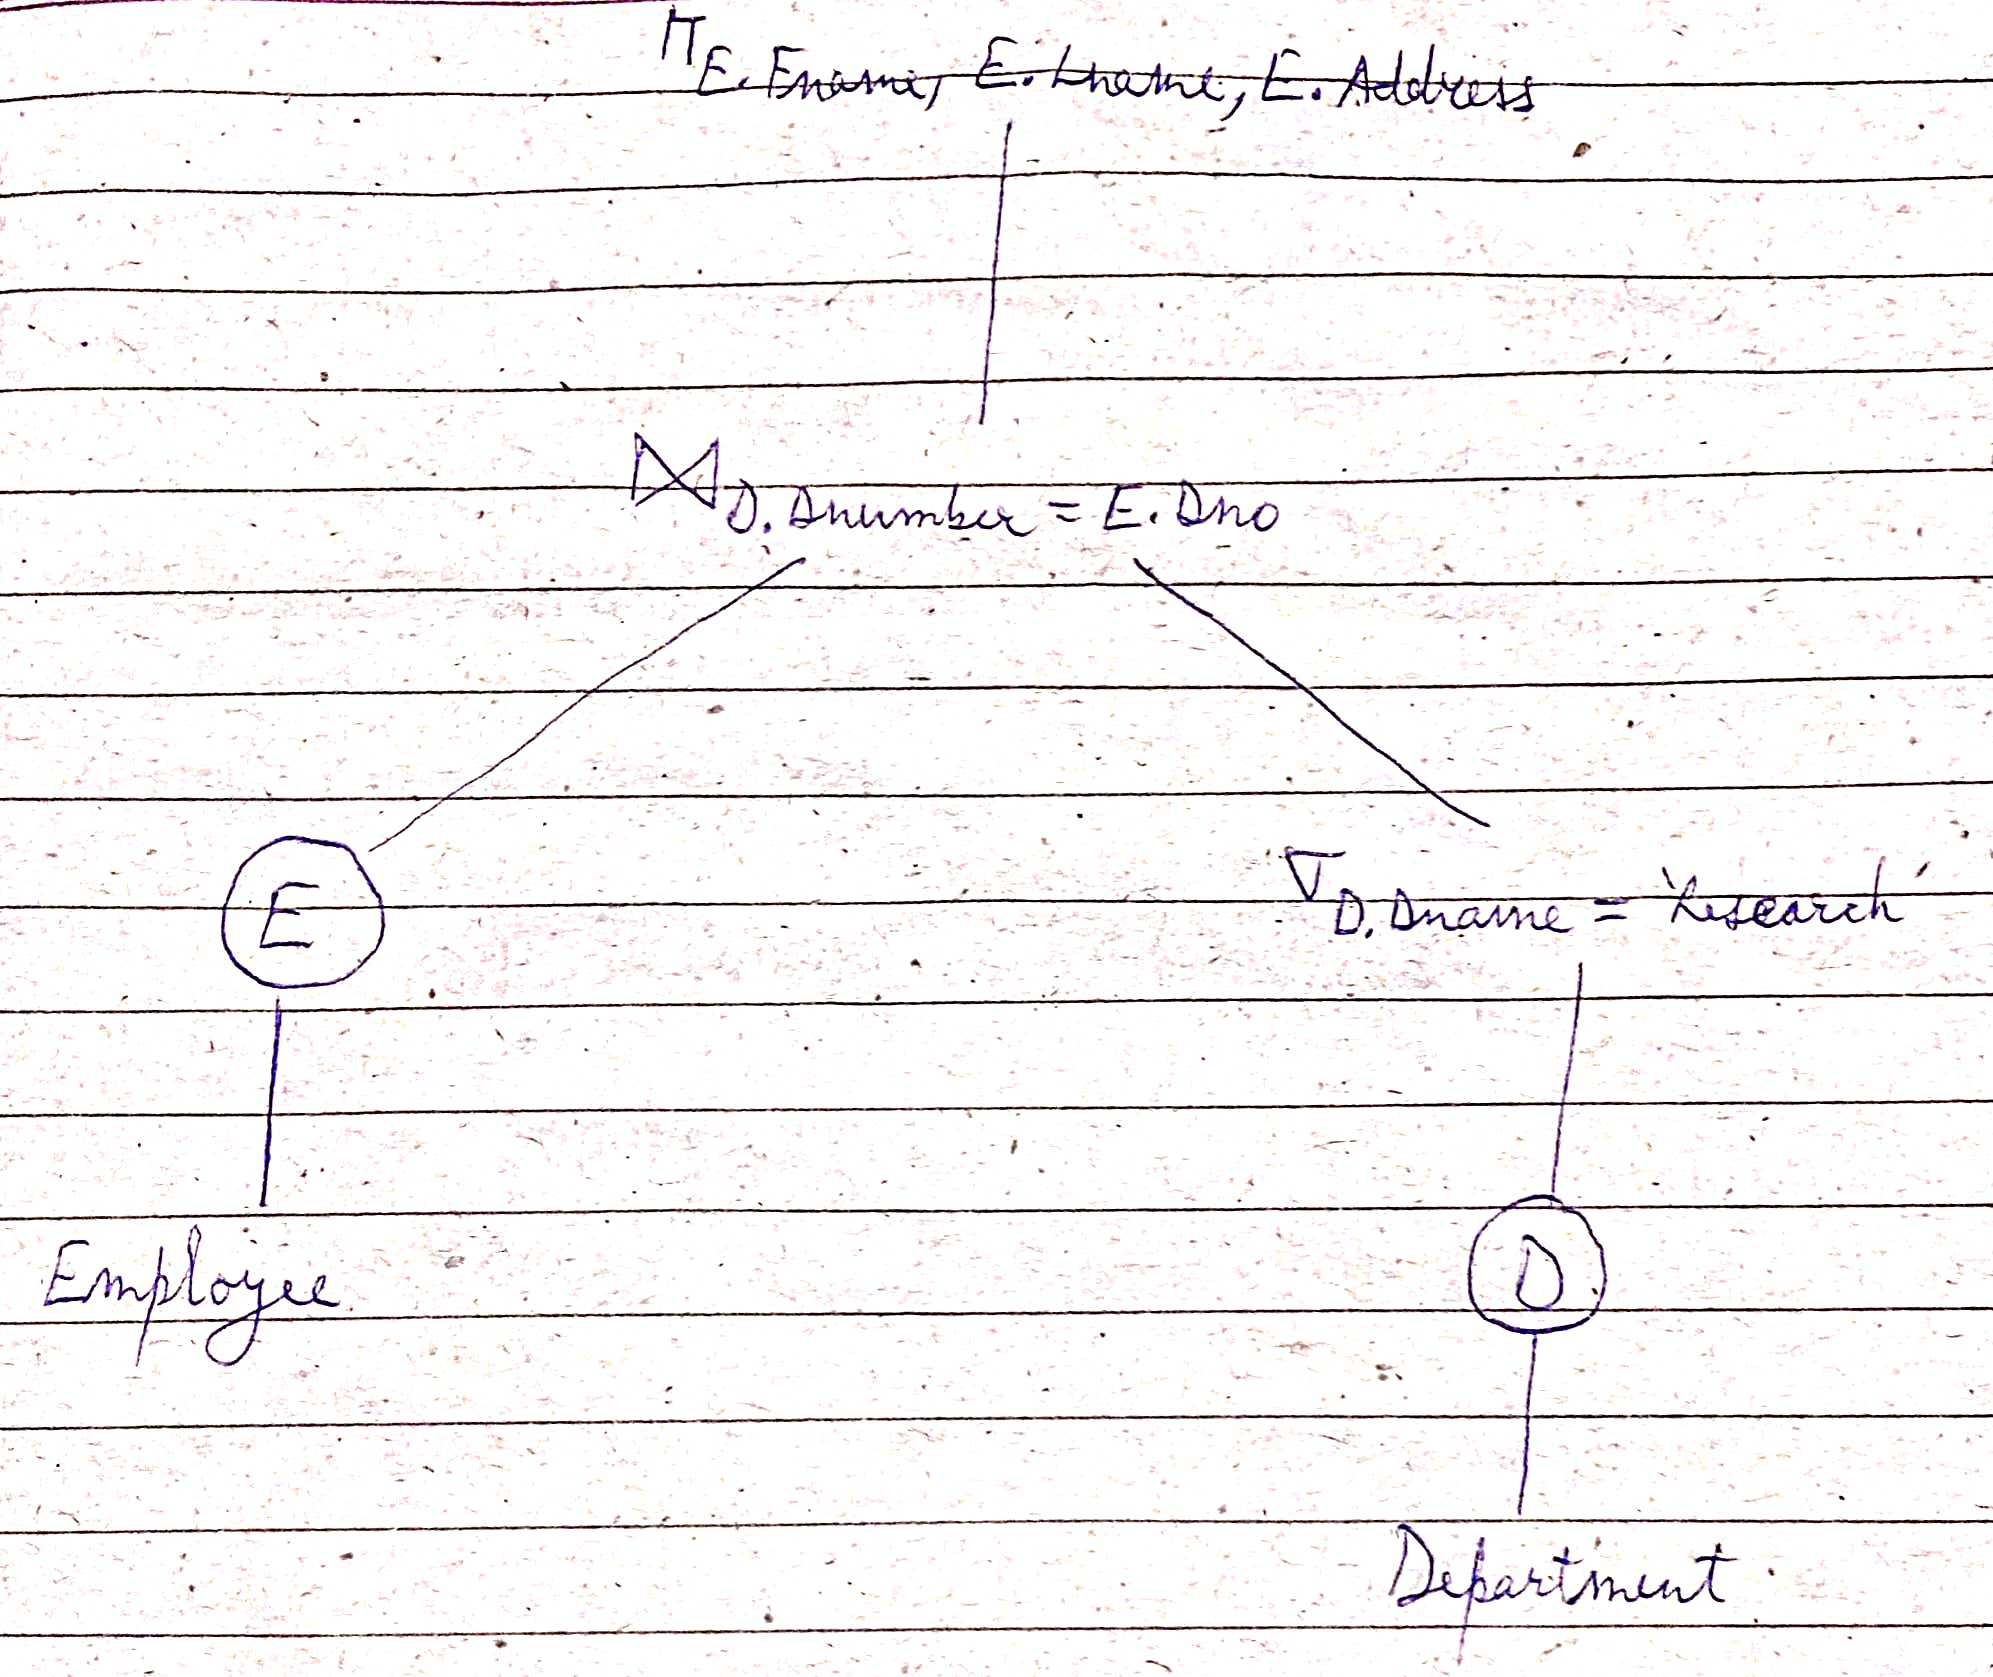 π E.Fname, E.Lname, E.Address
⋈ D.Dnumber = E.Dno
E
σ D.Dname = 'Research'
Employee
D
Department